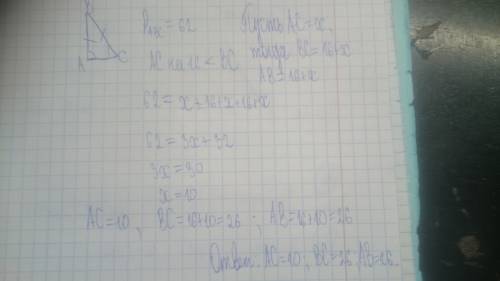 B
A
C
P_ABC = 62
Пусть AC = x,
AC на 16 < BC
тогда BC = 16+x
AB = 16+x
62 = x+16+x+16+x
62 = 3x+32
3x = 30
x = 10
AC=10, BC=16+10=26; AB=16+10=26
Ответ. AC=10; BC=26 AB=26.